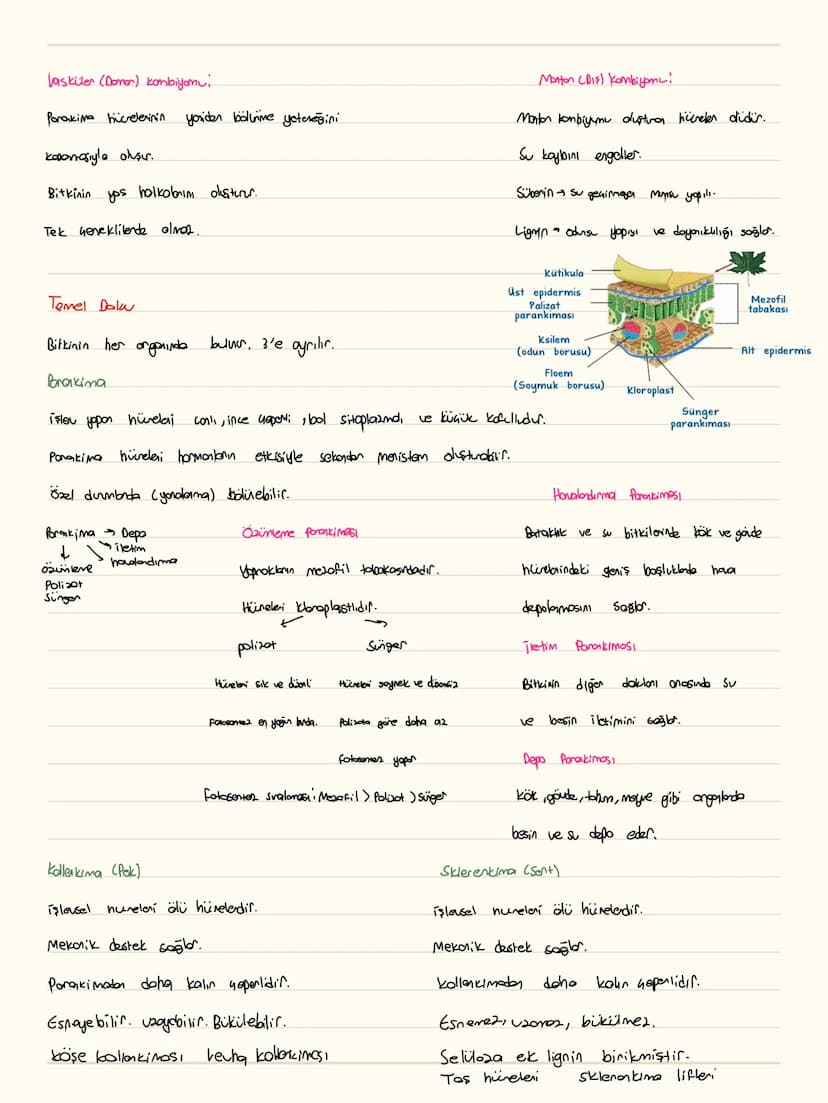 Vasküler (Damar) Kambiyomu:
Parankima hücrelerinin yeniden bölünme yeteneğini
kazanmasıyla oluşur.
Bitkinin yaş halkalarını oluşturur.
Tek çeneklilerde olmaz.
Mantar (Dış) Kambiyomu:
Mantar kambiyumu oluşturan hücreler ölüdür.
Su kaybını engeller.
Süberin → su geçirmeyen mumsu yapılı.
Lignin → odunsu yapısı ve dayanıklılığı sağlar.
Kütikula
Üst epidermis
Palizat
parankiması
Ksilem
(odun borusu)
Floem
(Soymuk borusu)
Kloroplast
Sünger
parankiması
Alt epidermis
Mezofil
tabakası
Temel Doku
Bitkinin her organında bulunur. 3'e ayrılır.
Parankima
İşlev yapan hücreleri canlı, ince çeperli, bol sitoplazmalı ve küçük kofulludur.
Parankima hücreleri hormonların etkisiyle sekonder meristem oluşturabilir.
Özel durumlarda (yaralanma) bölünebilir.
Parankima → Depo
İletim
havalandırma
özümleme
Polizat
Sünger
Özümleme Parankiması
Yaprakların mezofil tabakasındadır.
Hücreleri kloroplastlıdır.
polizat
Sünger
Hücreleri sık ve düzenli
Hücreleri seyrek ve düzensiz
Fotosentez en yoğun burda.
Polizata göre daha az
fotosentez yapar
Fotosentez sıralaması: Mezofil > Polizot > Sünger
Havalandırma Parankiması
Bataklık ve su bitkilerinde kök ve gövde
hücrelerindeki geniş boşluklarda hava
depolanmasını sağlar.
İletim Parankiması
Bitkinin diğer dokuları arasında su
ve besin iletimini sağlar.
Depo Parankiması
Kök, gövde, tohum, meyve gibi organlarda
besin ve su depo eder.
Kollenkima (Pek)
İşlevsel hücreleri ölü hücrelerdir.
Mekanik destek sağlar.
Parankimadan daha kalın çeperlidir.
Esneyebilir. uzayabilir. Bükülebilir.
köşe kollenkiması levha kollenkiması
Sklerenkima (Sert)
İşlevsel hücreleri ölü hücrelerdir.
Mekanik destek sağlar.
Kollenkimadan daha kalın çeperlidir.
Esnemez, uzamaz, bükülmez.
Selüloza ek lignin birikmiştir.
Taş hücreleri sklerenkima lifleri